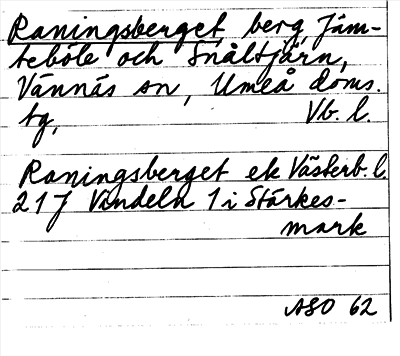 Raningsberget, berg, Jäm-
teböle och Snåltjärn,
Vännäs sn, Umeå doms.
tg, Vb. l.
Raningsberget ek Västerb. l.
217 Vindeln 1 i Starkes-
mark
ASO 62